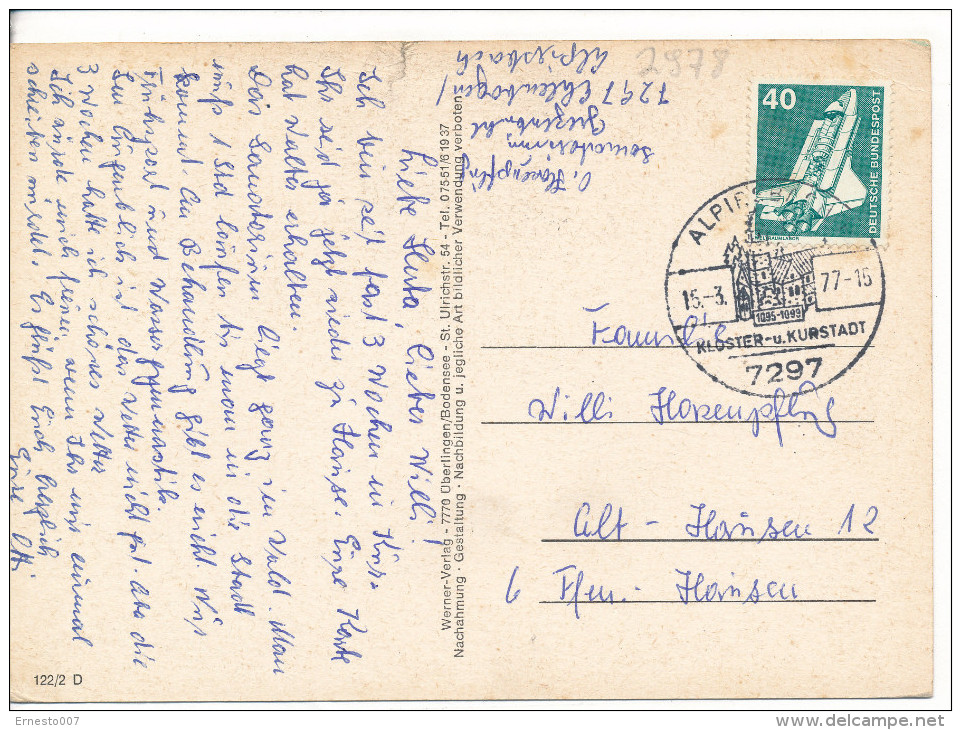 Liebe Herta, lieber Willi!
Ich bin seit fast 3 Wochen in Kur.
Ihr seid ja jetzt wieder zu Hause. Eure Karte
hat Walter erhalten.
Das Sanatorium liegt ganz im Wald. Man
muß 1 Std laufen bis man in die Stadt
kommt. An Behandlung gibt es nicht. Nur
Frühsport und Wassergymnastik.
Im Augenblick ist das Wetter nicht gut. Aber die
3 Wochen hatte ich schönes Wetter
Ich würde mich freuen, wenn Ihr mir einmal
schreiben würdet. Es grüßt Euch herzlich
Eure
O. Hasenpflug
Sanatorium
7297 Ehlenbogen/
Alpirsbach
2978
40
DEUTSCHE BUNDESPOST
ALPIRSBACH
15.-3. 77-15
1095-1099
KLOSTER-u. KURSTADT
7297
Werner-Verlag - 7770 Überlingen/Bodensee - St. Ulrichstr. 54 - Tel. 07551/61937
Nachahmung · Gestaltung · Nachbildung u. jegliche Art bildlicher Verwendung verboten
Familie
Willi Hasenpflug
Alt - Hausen 12
6 Ffm. - Hausen
122/2 D
Ernesto007
www.delcampe.net